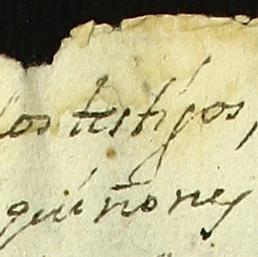 los testigos,
quiñones